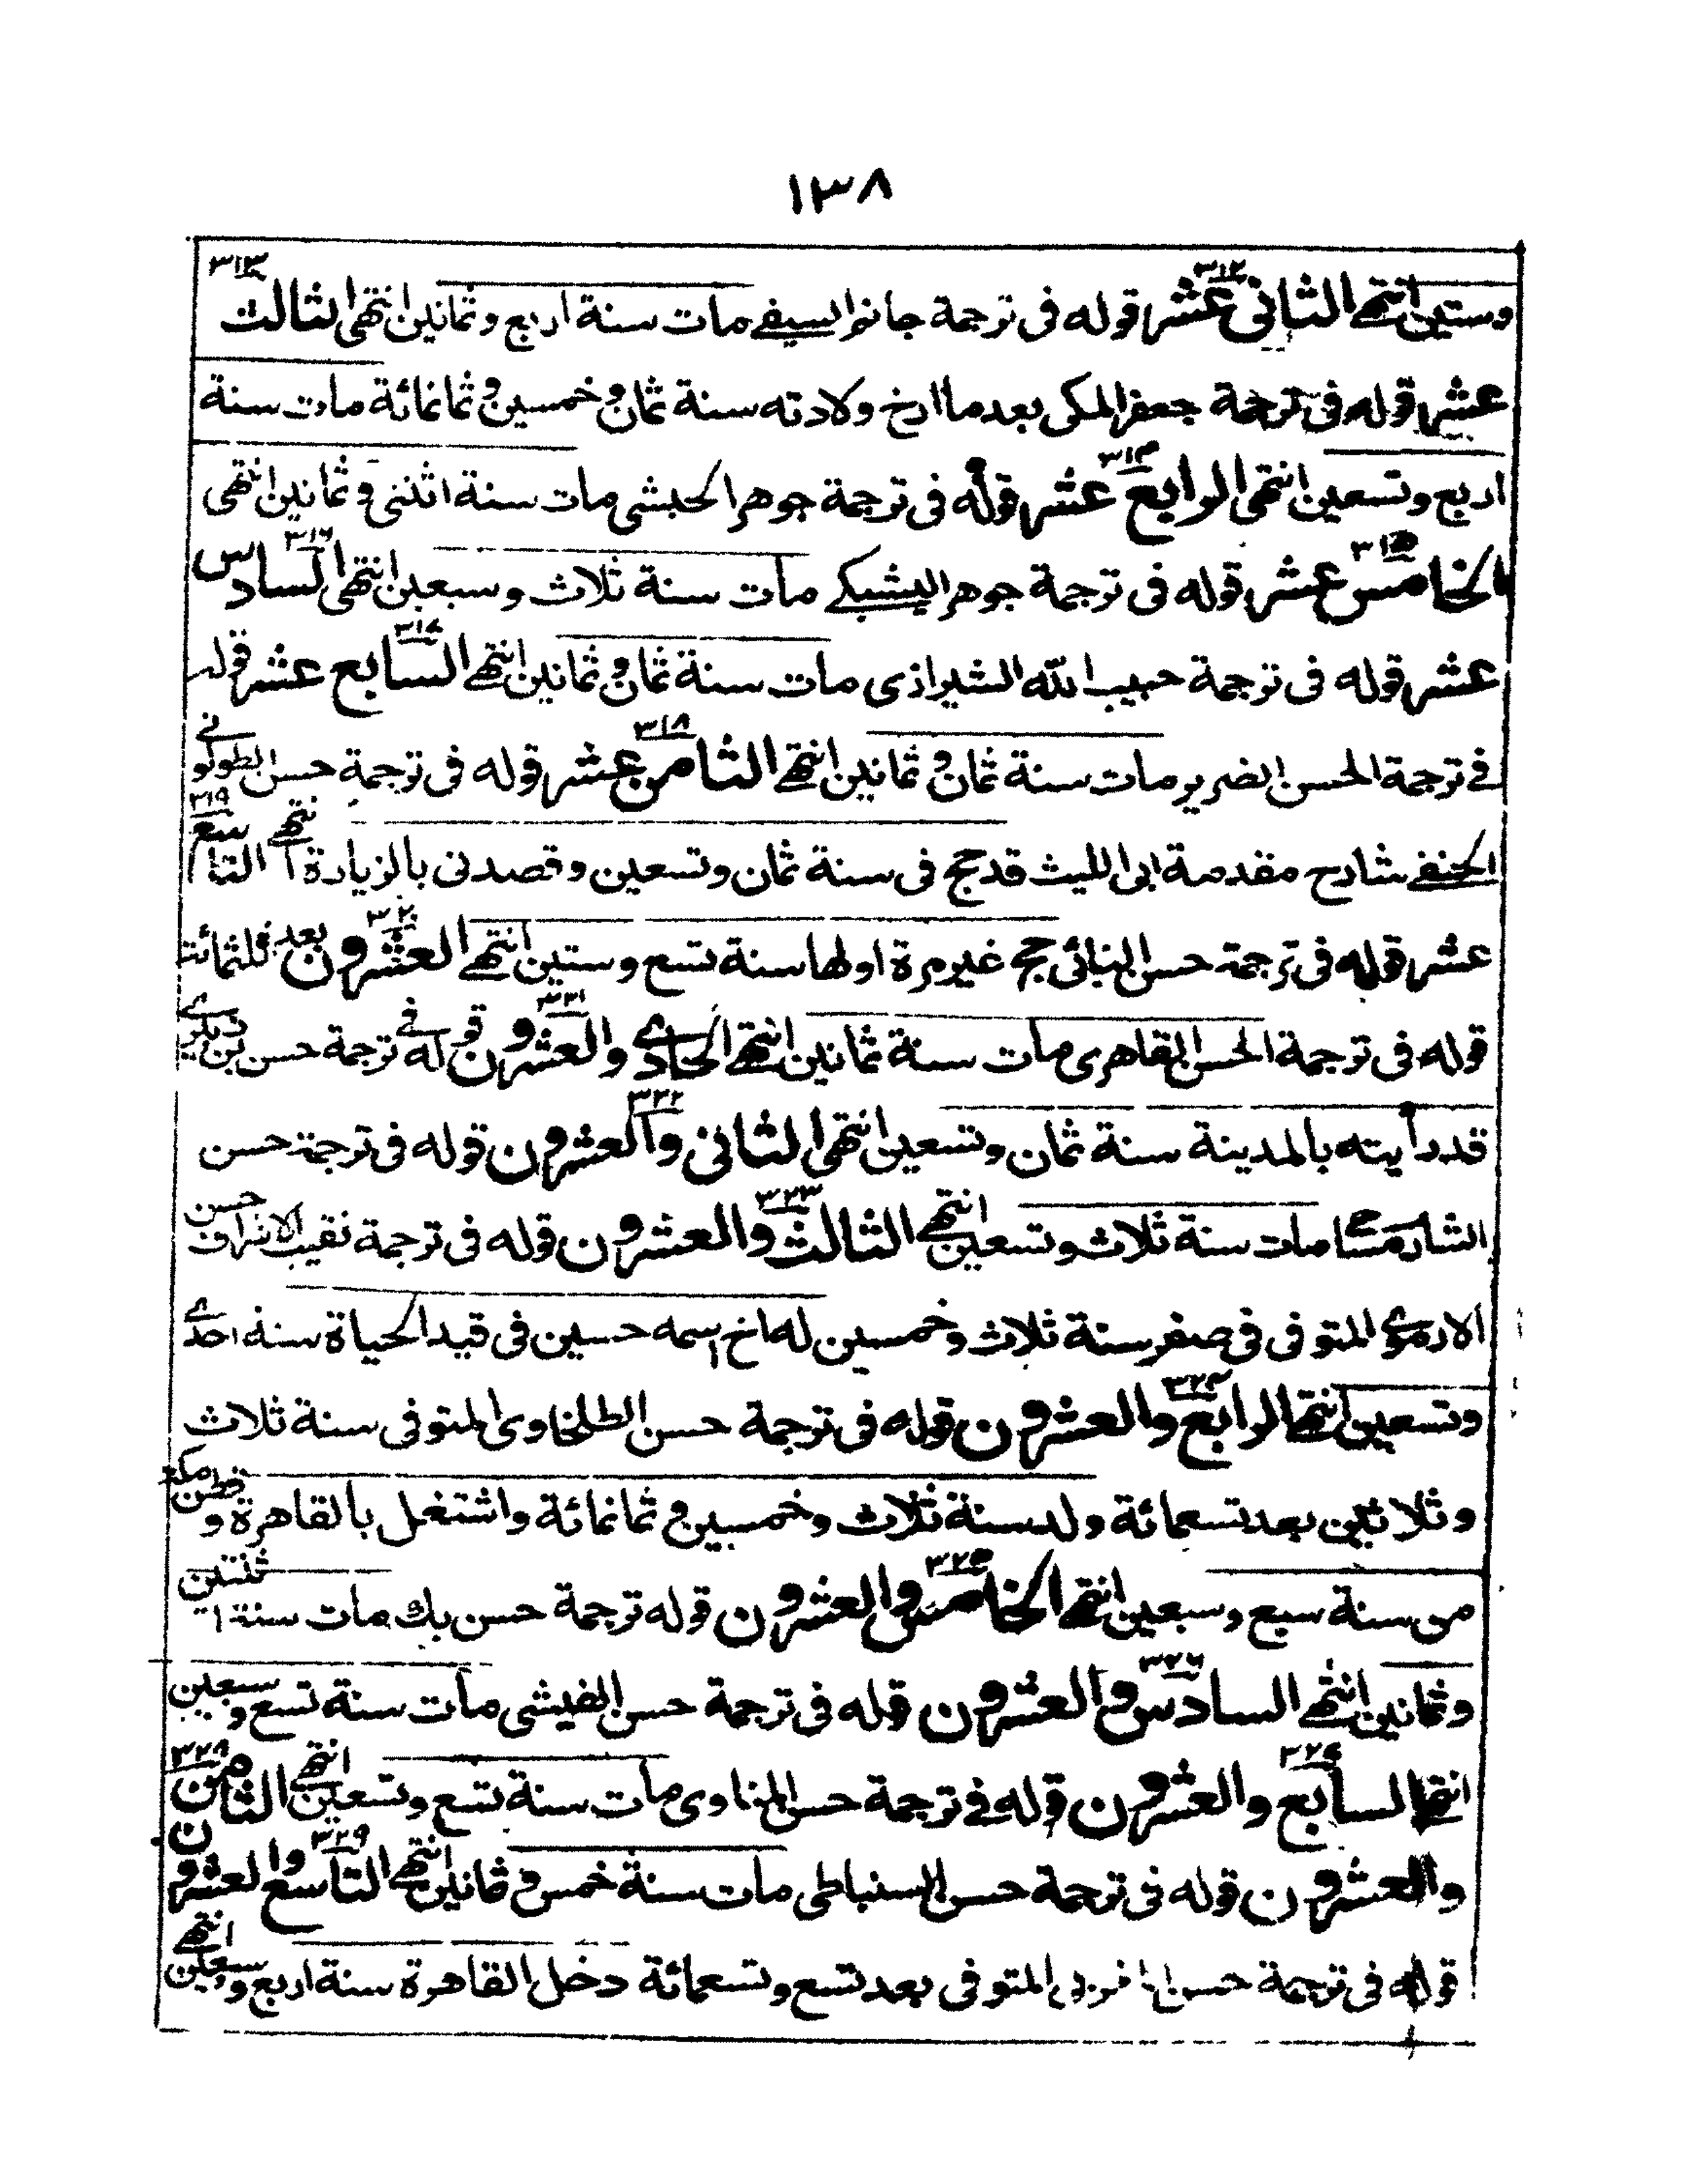 ١٣٨
٣١٢ ٣١٣
وستين انتهى الثاني عشر قوله في ترجمة جانم السيفي مات سنة اربع وثمانين انتهى الثالث
عشر قوله في ترجمة جعفر المكى بعد ما ارخ ولادته سنة ثمان وخمسين وثمانمائة مات سنة
٣١٤
اربع وتسعين انتهى الرابع عشر قوله في ترجمة جوهر الحبشى مات سنة اثنى وثمانين انتهى
٣١٥ ٣١٦
الخامس عشر قوله في ترجمة جوهر اليشبكى مات سنة ثلاث وسبعين انتهى السادس
٣١٧
عشر قوله في ترجمة حبيب الله الشيرازى مات سنة ثمان وثمانين انتهى السابع عشر قوله
٣١٨
في ترجمة الحسن الضرير مات سنة ثمان وثمانين انتهى الثامن عشر قوله في ترجمة حسن الطولونى
٣١٩
الحنفى شارح مقدمة ابى الليث قد حج في سنة ثمان وتسعين وقصدنى بالزيارة انتهى التاسع
٣٢٠
عشر قوله في ترجمة حسن البنائى حج غير مرة اولها سنة تسع وستين انتهى العشرون بعد ثلثمائة
٣٢١
قوله في ترجمة الحسن القاهرى مات سنة ثمانين انتهى الحادى والعشرون قوله في ترجمة حسن بن
٣٢٢
قد رأيته بالمدينة سنة ثمان وتسعين انتهى الثانى والعشرون قوله في ترجمة حسن
٣٢٣
الشارمساحى مات سنة ثلاث وتسعين انتهى الثالث والعشرون قوله في ترجمة نقيب الاشراف حسن
الارموى المتوفى في صفر سنة ثلاث وخمسين له اخ اسمه حسين في قيد الحياة سنة احدى
٣٢٤
وتسعين انتهى الرابع والعشرون قوله في ترجمة حسن الطلخاوى المتوفى سنة ثلاث
وثلاثين بعد تسعمائة ولد سنة ثلاث وخمسين وثمانمائة واشتغل بالقاهرة وقطن مكة
٣٢٥
من سنة سبع وسبعين انتهى الخامس والعشرون قوله ترجمة حسن بك مات سنة اثنتين
٣٢٦
وثمانين انتهى السادس والعشرون قوله في ترجمة حسن الفيشى مات سنة تسع وسبعين
٣٢٧ ٣٢٨
انتهى السابع والعشرون قوله في ترجمة حسن المناوى مات سنة تسع وتسعين انتهى الثامن
٣٢٩
والعشرون قوله في ترجمة حسن السنباطى مات سنة خمس وثمانين انتهى التاسع والعشرون
قوله في ترجمة حسن المتوفى بعد تسع وتسعمائة دخل القاهرة سنة اربع وسبعين انتهى